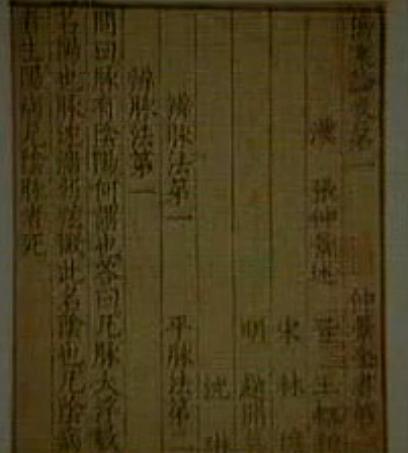 傷寒論卷第一 仲景全書第
漢 張仲景述 晉 王叔和
宋 林億
明 趙開美
沈 琳
辨脉法第一 平脉法第二
辨脉法第一
問曰脉有陰陽何謂也答曰凡脉大浮數
名陽也脉沈濇弱弦微此名陰也凡陰病
者生陽病見陰脉者死